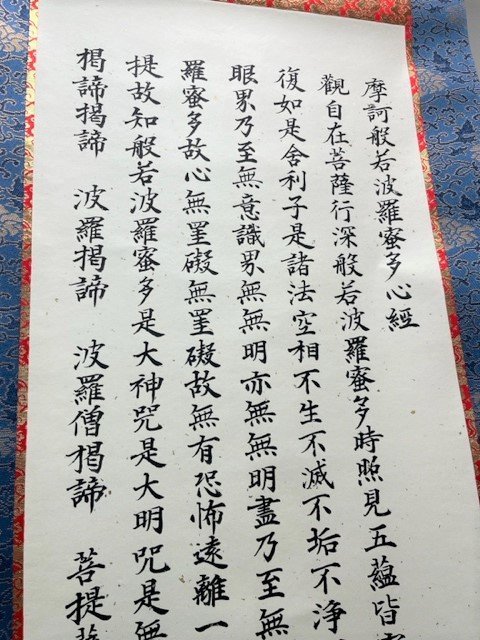 摩訶般若波羅蜜多心經
觀自在菩薩行深般若波羅蜜多時照見五蘊皆
復如是舍利子是諸法空相不生不滅不垢不浄
眼界乃至無意識界無無明亦無無明盡乃至無
羅蜜多故心無罣礙無罣礙故無有恐怖遠離一
提故知般若波羅蜜多是大神咒是大明咒是無
揭諦揭諦 波羅揭諦 波羅僧揭諦 菩提